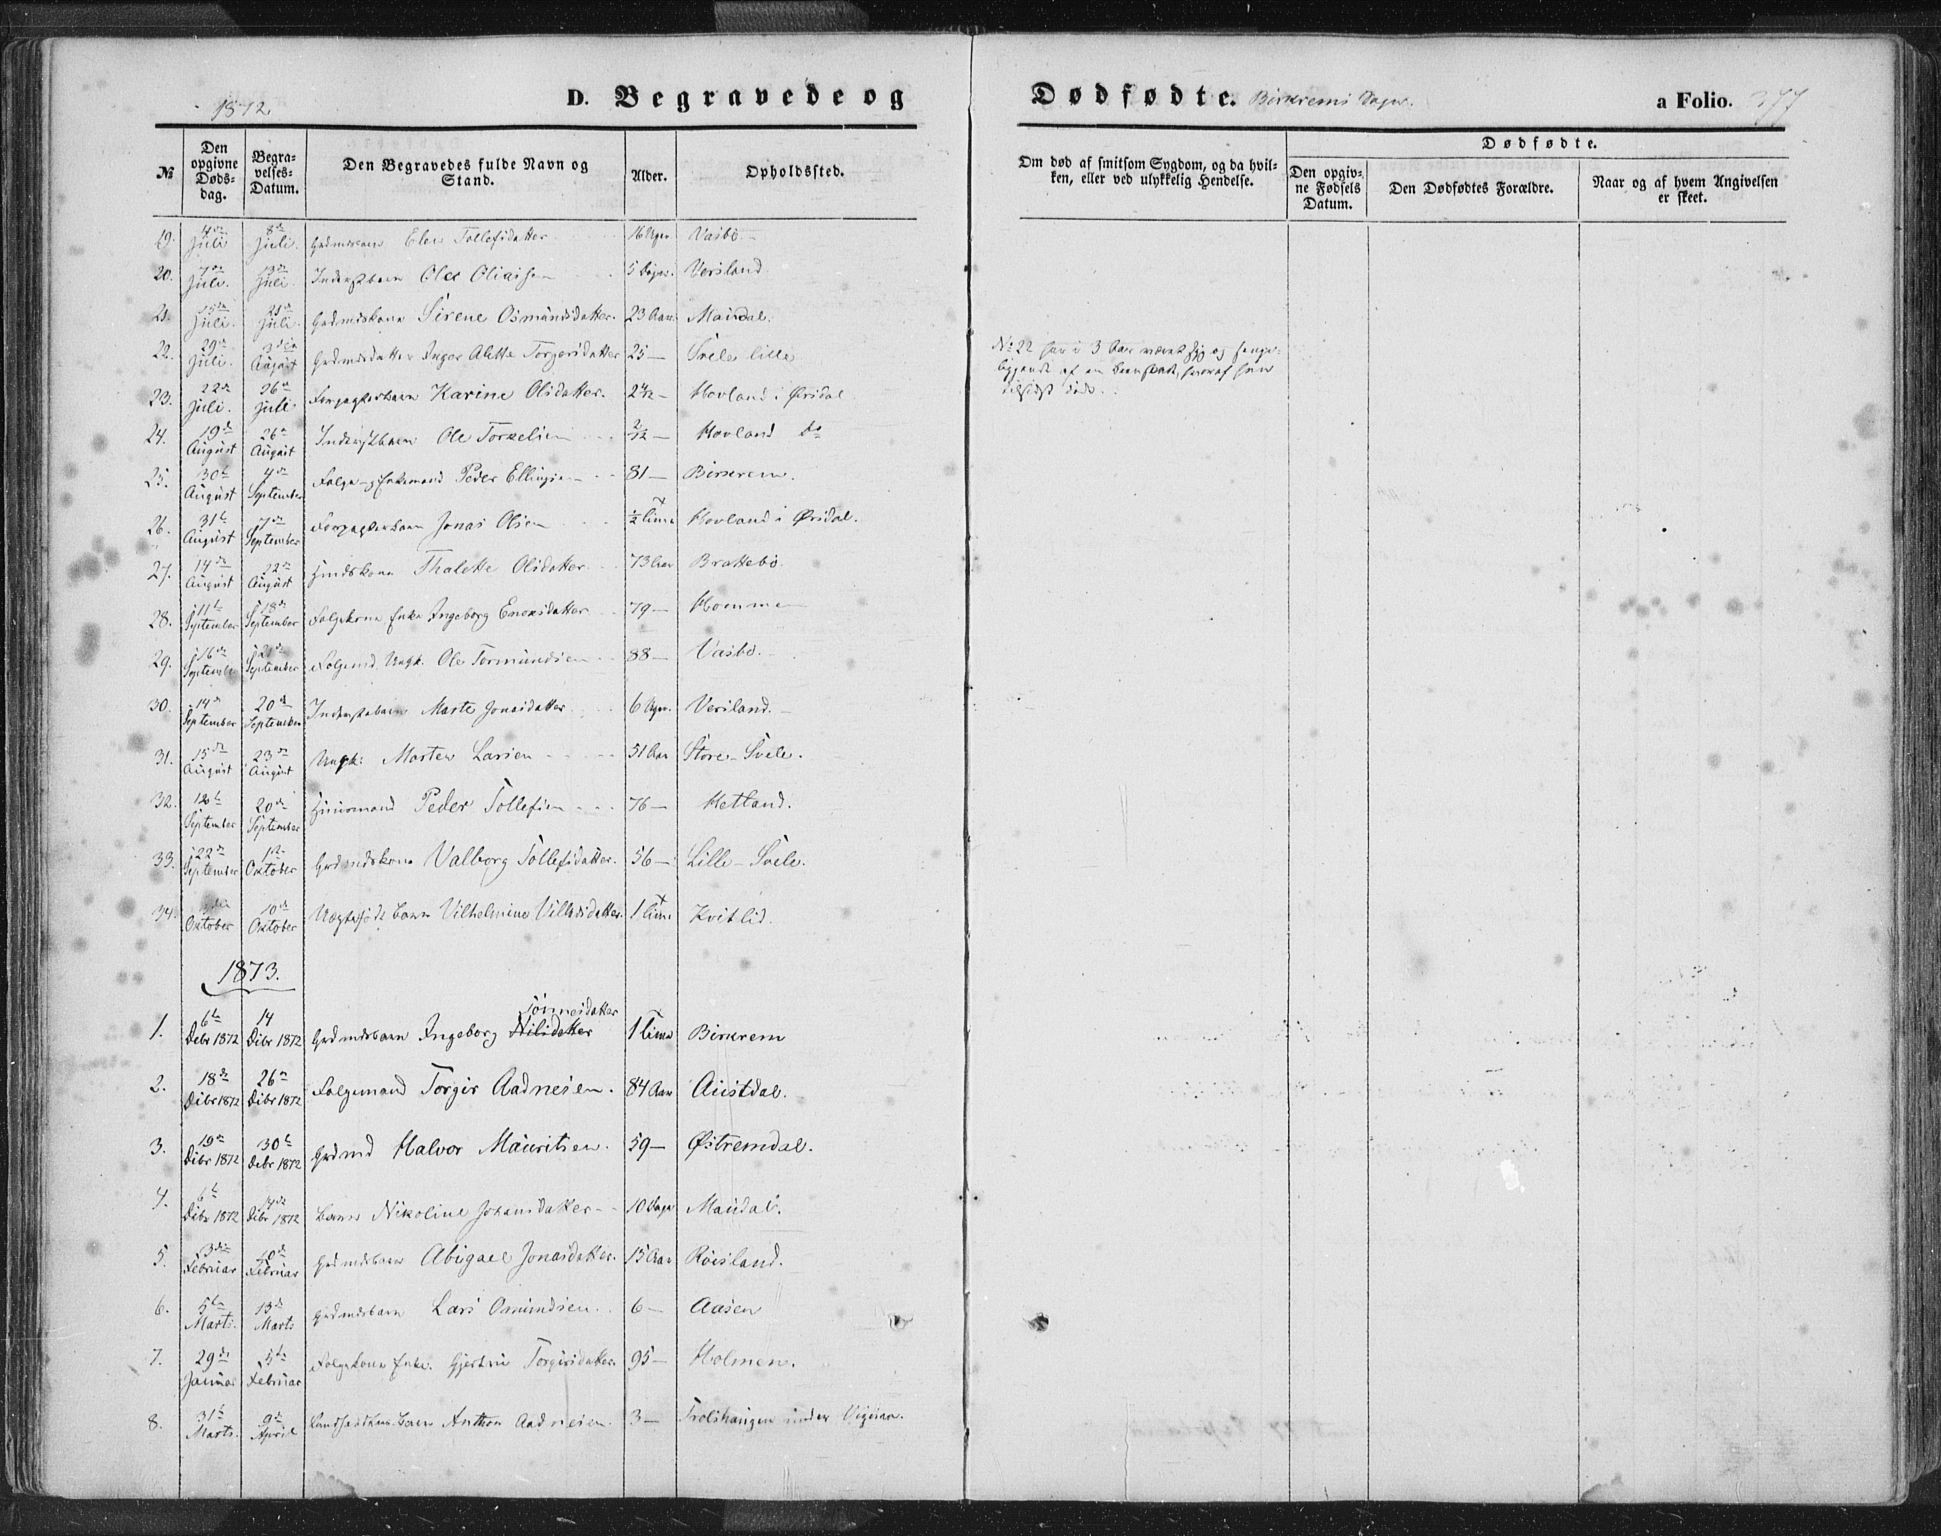 1872.
D. Begravede og Dødfødte. Birkrems Sogn.
a Folio. 377
№
Den opgivne Døds-dag.
Begra-velses-Datum.
Den Begravedes fulde Navn og Stand.
Alder.
Opholdssted.
Om død af smitsom Sygdom, og da hvil-ken, eller ved ulykkelig Hendelse.
Dødfødte.
Den opgiv-ne Fødsels Datum.
Den Dødfødtes Forældre.
Naar og af hvem Angivelsen er skeet.
19. 4de Juli 8de Juli. Grdmdsbarn Elen Tollefsdatter 16 Uger Vasbø
20. 7de Juli. Juli. Inderstbarn Ole Oliaisen 5 Dage. Versland
21. 15de Juli. 21de Juli. Grdmdskone Sirene Osmundsdatter. 23 Aar. Maudal.
22. 29de Juli. 3die August Grdmdsdatter Inger Alette Torgersdatter 25 — Svele lille No 22 har i 3 Aar været syg og senge-
liggende af en Beenskade, hvoraf hun
tilsidst døde.
23. 22de Juli. 26de Juli. Forpagterbarn Karine Olsdatter. 2/12 — Hovland i Ørsdal
24. 19de August 26de August Inderstbarn Ole Torkelsen 2/12 — Hovland do
25. 30te August 4de September Folge- og Enkemand Peder Ellingsen 81 — Birkrem.
26. 31te August 7de September Forpagterbarn Jonas Olsen ½ Time Hovland i Ørsdal.
27. 14de August 22de August Huuskone Thalette Olsdatter 73 Aar Brattebø
28. 11te September 18de September Folgekone Enke Ingeborg Enersdatter 79 — Homme
29. 16de September 21de September Folgemd, Ungk. Ole Tormundsen 88 — Vasbø.
30. 14de September 20de September Inderstebarn Marte Jonasdatter 6 Uger. Versland.
31. 15de August 23de August Ungk: Morten Larsen 51 Aar Store-Svele.
32. 12te September 20de September Huusmand Peder Tollefsen 76 — Ketland.
33. 22de September 1ste October Grdmdskone Valborg Tollefsdatter. 56 — Lille-Svele.
34. October 10de October Uægtefødt Barn Vilhelmine Villasdatter. 1 Time Kvitlid.
1873.
Tønnesdatter
1. 6te Debr 1872 14 Dibr 1872 Grdmdsbarn Ingeborg Nilsdatter 1 Time Birkrem
2. 18de Dibr 1872 26de Dibr 1872 Folgemand Torgir Aadnesen. 84 Aar Austdal.
3. 19de Dibr 1872 30te Debr 1872 Grdmd Halvor Mauritsen. 59 — Østremdal.
4. 6te Dibr 1872 14de Dibr 1872 Barn Nikoline Johansdatter 10 Dage Maudal.
5. 3die Februar 10de Februar Grdmdsbarn Abigael Jonasdatter. 15 Aar Røisland.
6. 5te Marts. 13de Marts Grdmdsbarn Lars Osmundsen 6 — Aasen
7. 29de Januar 5te Februar Folgekone Enke. Gjertrui Torgirsdatter 95 — Holmen.
8. 31te Marts. 9de April Barn Anthon Aadnesen 3 — Trolshaugen under Vigesaa.